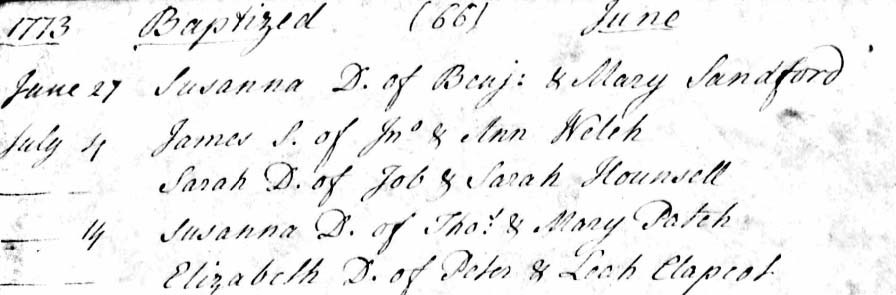 1773 Baptized (66) June
June 27 Susanna D. of Benj: & Mary Sandford
July 4 James S. of Jno & Ann Welch
— — Sarah D. of Job & Sarah Hounsell
— 14 Susanna D. of Thos & Mary Patch
— — Elizabeth D. of Peter & Leah Clapcot